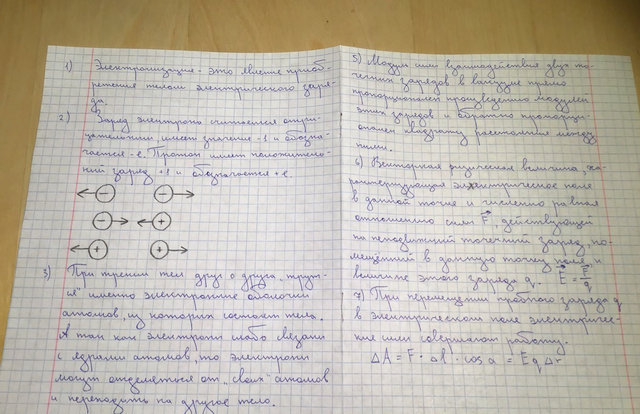 1) Электронизация - это явление приоб-
ретения телом электрического заря-
да.
2) Заряд электрона считается отри-
цательным, имеет значение -1 и обозна-
чается -е. Протон имеет положитель-
ный заряд +1 и обозначается +е.
← - - →
- → ← +
← + + →
3) При трении тел друг о друга "трут-
ся" именно электронные оболочки
атомов, из которых состоят тела.
А так как электроны слабо связаны
с ядрами атомов, то электроны
могут отделяться от "своих" атомов
и переходить на другое тело.
5) Модуль силы взаимодействия двух то-
чечных зарядов в вакууме прямо
пропорционален произведению модулей
этих зарядов и обратно пропорци-
онален квадрату расстояния между
ними.
6) Векторная физическая величина, ха-
рактеризующая электрическое поле
в данной точке и численно равная
отношению силы F, действующей
на неподвижный точечный заряд, по-
мещенный в данную точку поля, к
величине этого заряда q. E = F/q
7) При перемещении пробного заряда q
в электрическом поле электричес-
кие силы совершают работу.
ΔA = F · Δl · cos a = Eq Δr